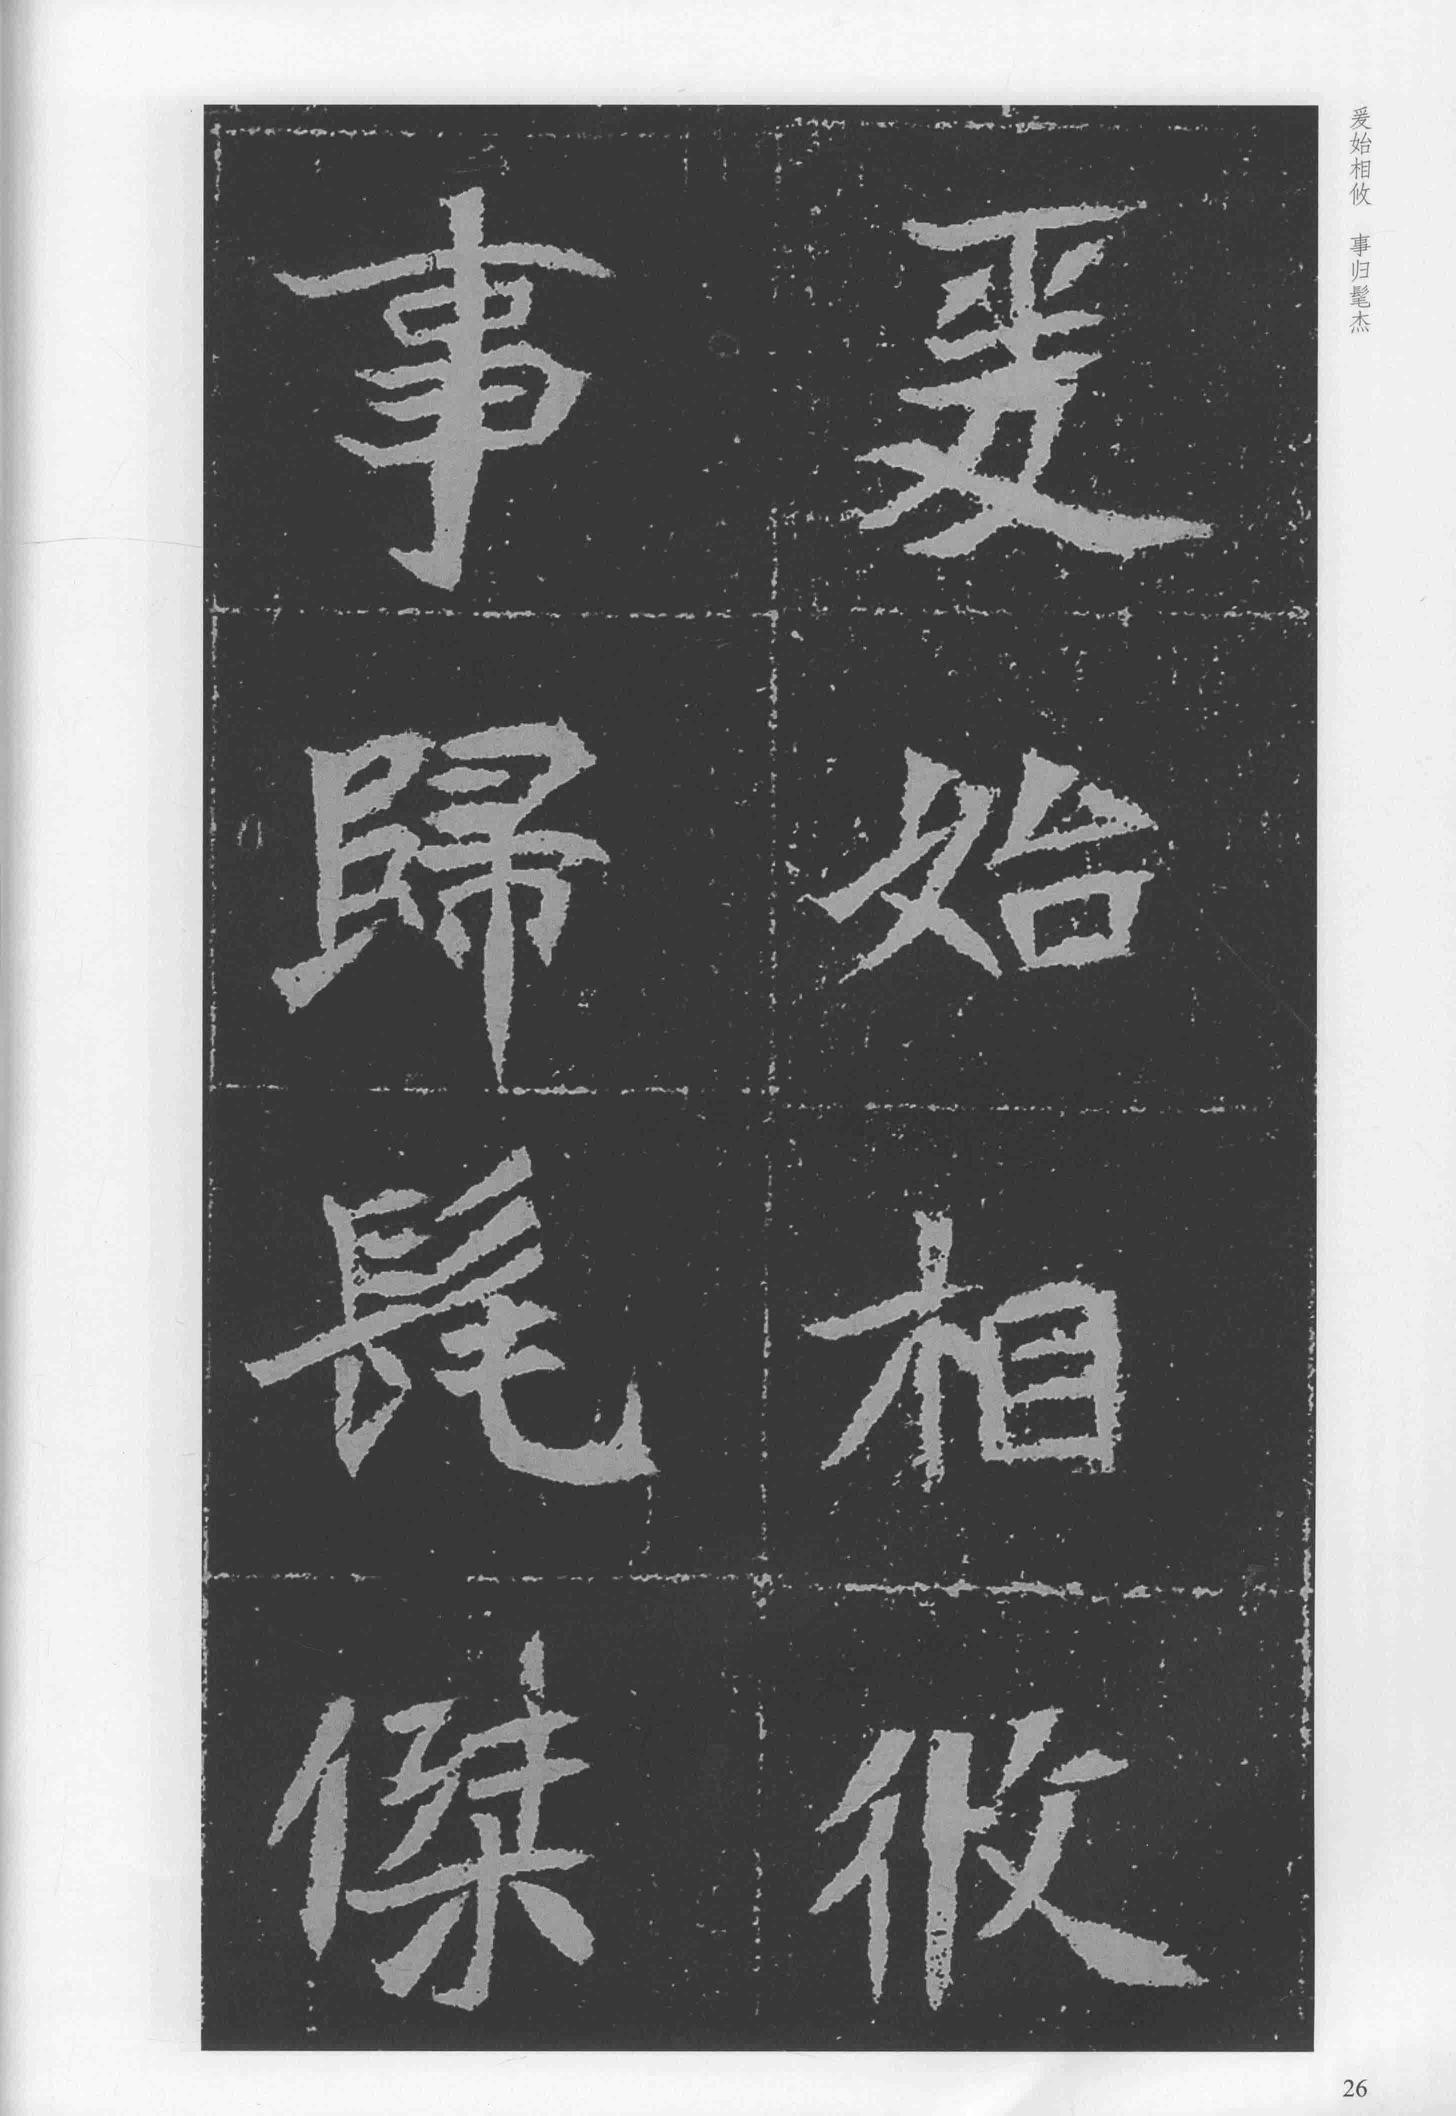 爰始相攸　事归髦杰
爰始相攸
事歸髦傑
26